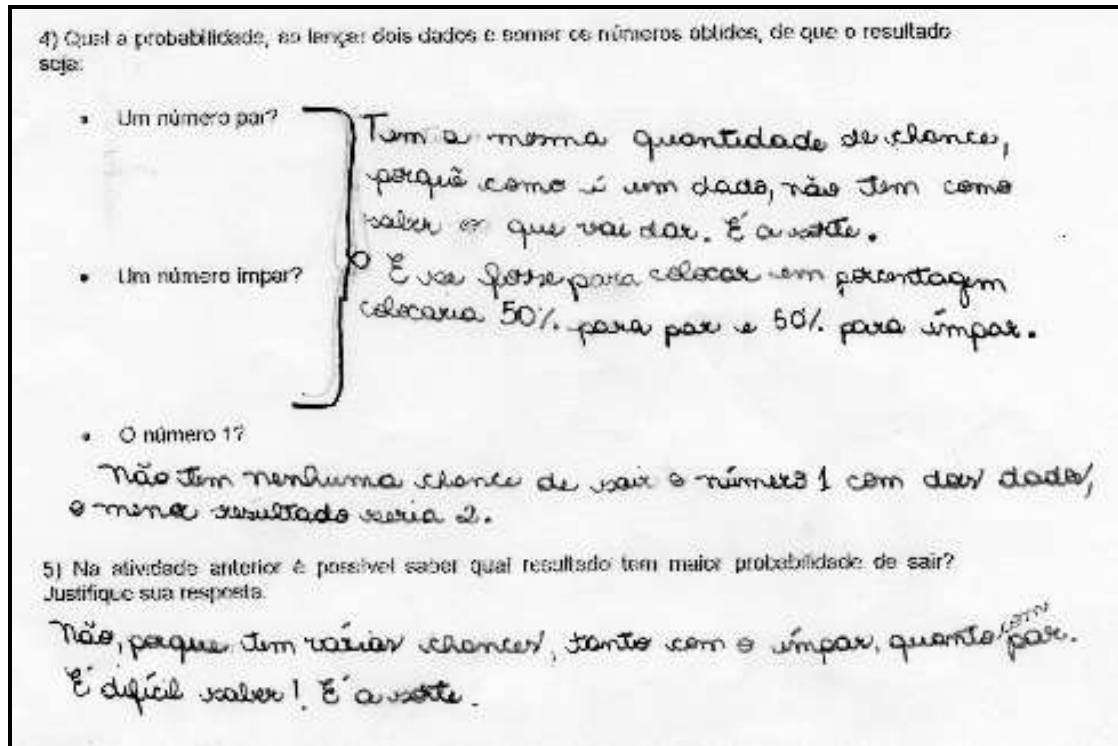 4) Qual a probabilidade, ao lançar dois dados e somar os números obtidos, de que o resultado
seja:
• Um número par?
Tem a mesma quantidade de chance,
porquê como é um dado, não tem como
saber o que vai dar. É a sorte.
• Um número impar?
E se fosse para colocar em porcentagem
colocaria 50% para par e 50% para ímpar.
• O número 1?
Não tem nenhuma chance de sair o número 1 com dois dados,
o menor resultado seria 2.
5) Na atividade anterior é possível saber qual resultado tem maior probabilidade de sair?
Justifique sua resposta.
Não, porque tem várias chances, tanto com o ímpar, quanto com par.
É difícil saber! É a sorte.